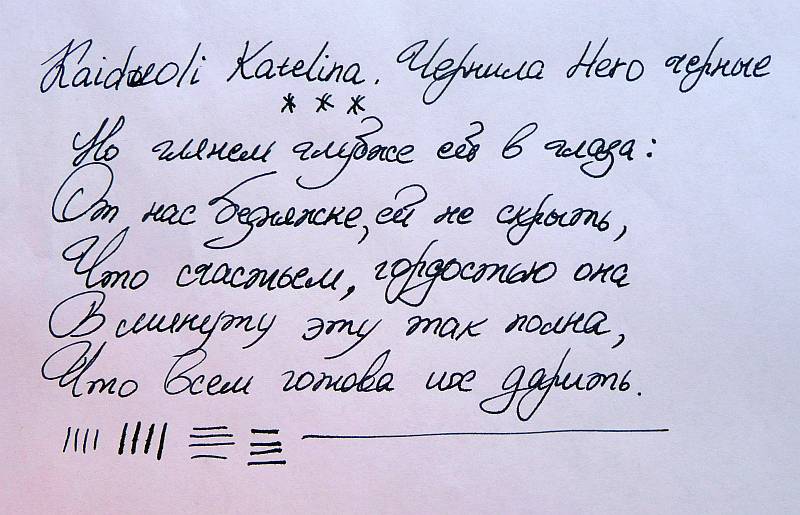 Kaiduoli Katelina. Чернила Hero черные
* * *
Но глянем глубже ей в глаза:
От нас бедняжке, ей не скрыть,
Что счастьем, гордостью она
В минуту эту так полна,
Что всем готова их дарить.